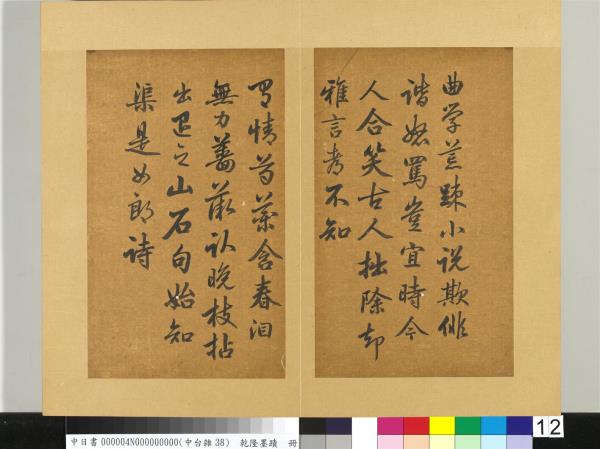 曲学荒踈小说欺俳
谐怒罵豈宜時今
人合笑古人拙除却
雅言都不知
有情芍藥含春泪
無力薔薇卧晚枝拈
出退之山石句始知
渠是女郎詩
中日書 000004N000000000(中台雜 38) 乾隆墨蹟 冊
12